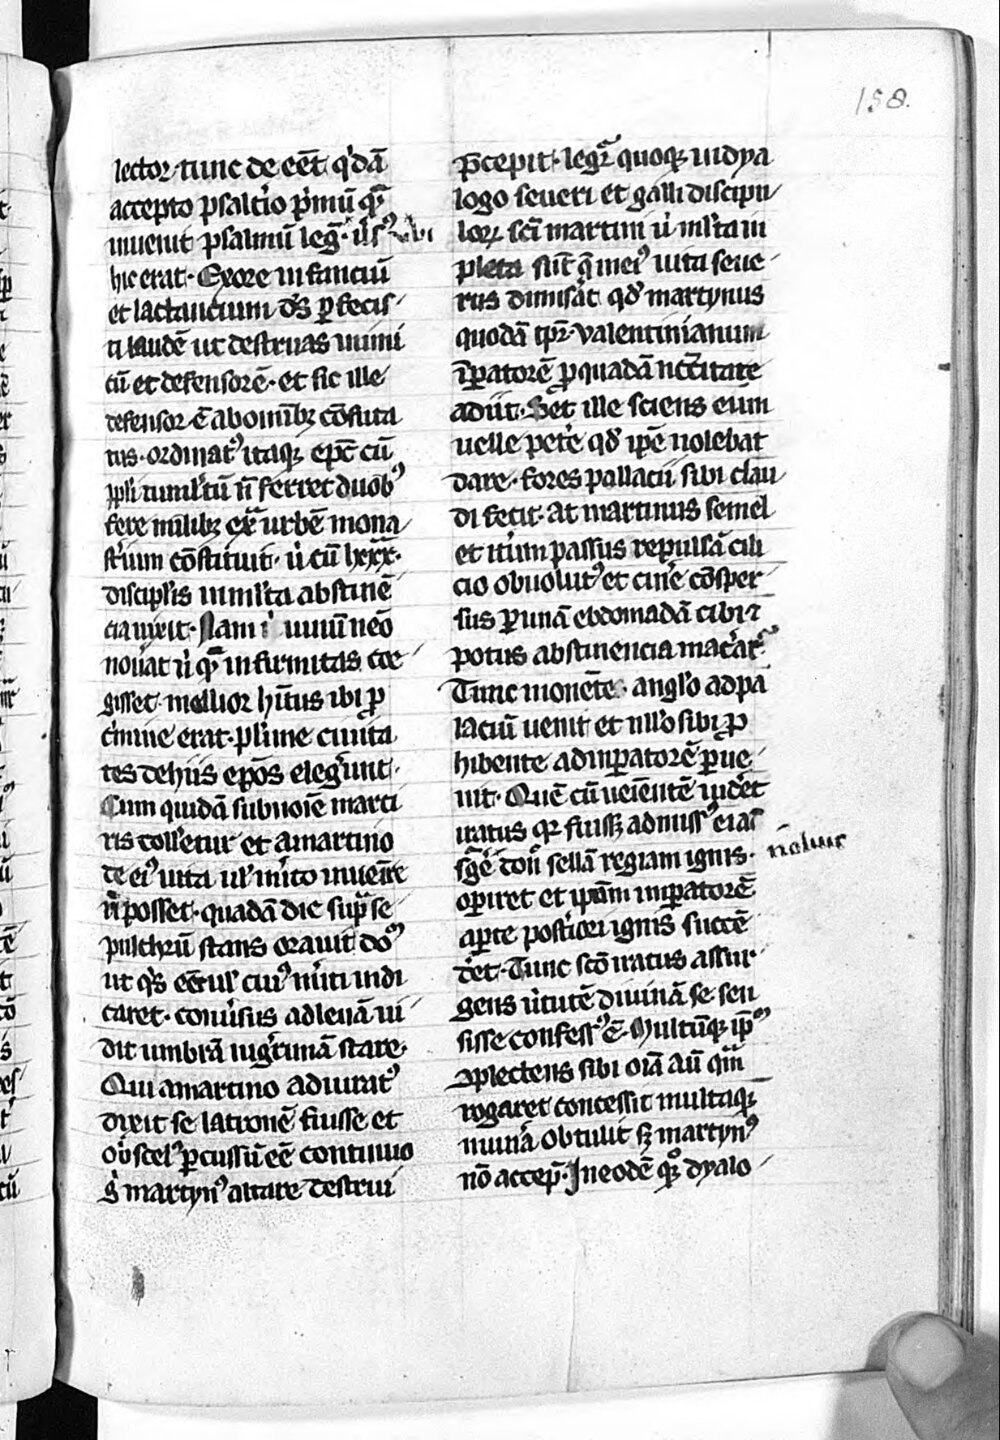 158.
lector tunc de eēt q̇dā
accepto psalṫio p̓mū qͣ
inuenit psalmū leg̅. u̓sꝰ ibi
hic erat. Exore infanciū
et lactancium dꝰs ꝑfecis
ti laudē ut destruas inimi
cū et defensorē. et sic ille
defensor ē ab om̄ibꝫ cōfuta
tus. ordinatꝰ itaqꝫ epc̄ cū
ppl̓i tuml̓tū n̄ ferret duobꝰ
fere milibꝫ exͣ urbē mona
st̓ium cōstituit. u̓ cū lxxx.
discipl̓is in ml̓ta abstinē
cia uixit. Nam i uinū neō
nou̓at n̓ qͣ infirmitas coe
gisset. mollior hītus ibi ꝓ
c̓mine erat. pl̓ime ciuita
tes de hiis epōs eleg̓unt.
Cum quidā sub noīe marti
ris coll̓etur et a martino
de eiꝰ uita ul̓ m̓ito inuenire
n̄ posset. quadā die supͣ se
pulchrū stans orauit doꝰ
ut q̓s eēt ul̓ cuiꝰ m̓iti indi
caret. conu̓sus ad leuā ui
dit umbrā nig̓rimā stare.
Qui a martino adiuratꝰ
dixit se latronē fuisse et
ob scelꝰ ꝑcussū eē continuo
g̓ martynꝰ altare destrui
p̄cepit. legr̄ quoqꝫ in dya
logo seueri et galli discipu
loꝝ sc̄i martini u̓ ml̓ta in
pleta sūt q̄ in eiꝰ uita seue
rus dimisāt. qd̓ martynus
quodā tp̄r. valentinianum
īꝑatorē ꝓ quadā nc̄c̄itate
adiit. Set ille sciens eum
uelle pet̓e qd̓ ip̄e nolebat
dare. fores pallacii sibi clau
di fecit. At martinus semel
et it̓um passus repulsā cili
cio obuolutꝰ et cin̓e cōsper
sus ꝑ unā ebdomadā cibi ⁊
potus abstinencia mac̓at̓
Tunc monēte angl̓o ad pa
laciū uenit et nll̓o sibi ꝓ
hibente ad inꝑatorē ꝑue
nit. Quē cū ueīentē uid̓et
iratus qꝛ fuissꝫ admissꝰ ei as
sg̓e
noluit
don̓ sellā regiam ignis.
oꝑiret et ip̄m inꝑatorē
aꝑte post̓iori ignis succē
d̓et. Tunc sc̄o iratus assur
gens u̓tutē diuinā se sen
sisse confessꝰ ē. Multūqꝫ ip̄m
ↄplectens sibi oīa aū qm̄
rogaret concessit multaqꝫ
mun̓a obtulit sꝫ martynꝰ
nō accep̄. In eodē qꝫͦ dyalo